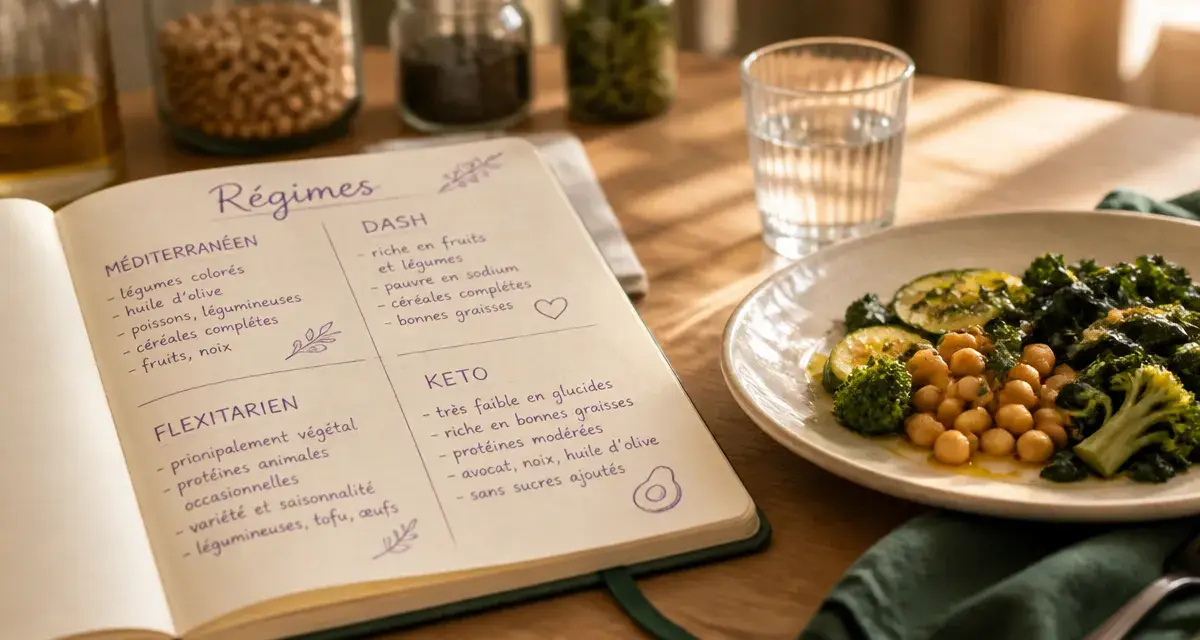 Régimes
MÉDITERRANÉEN
- légumes colorés
- huile d'olive
- poissons, légumineuses
- céréales complétes
- fruits, noix
DASH
- riche en fruits
et légumes
- pauvre en sodium
- céréales complétes
- bonnes graisses
FLEXITARIEN
- prionipalement végétal
- protéines animales
occasionnelles
- variété et saisonnalité
- légumineuses, tofu, œufs
KETO
- très faible en glucides
- riche en bonnes graisses
- protéines modérées
- avocat, noix, huile d'olive
- sans sucres ajoutés